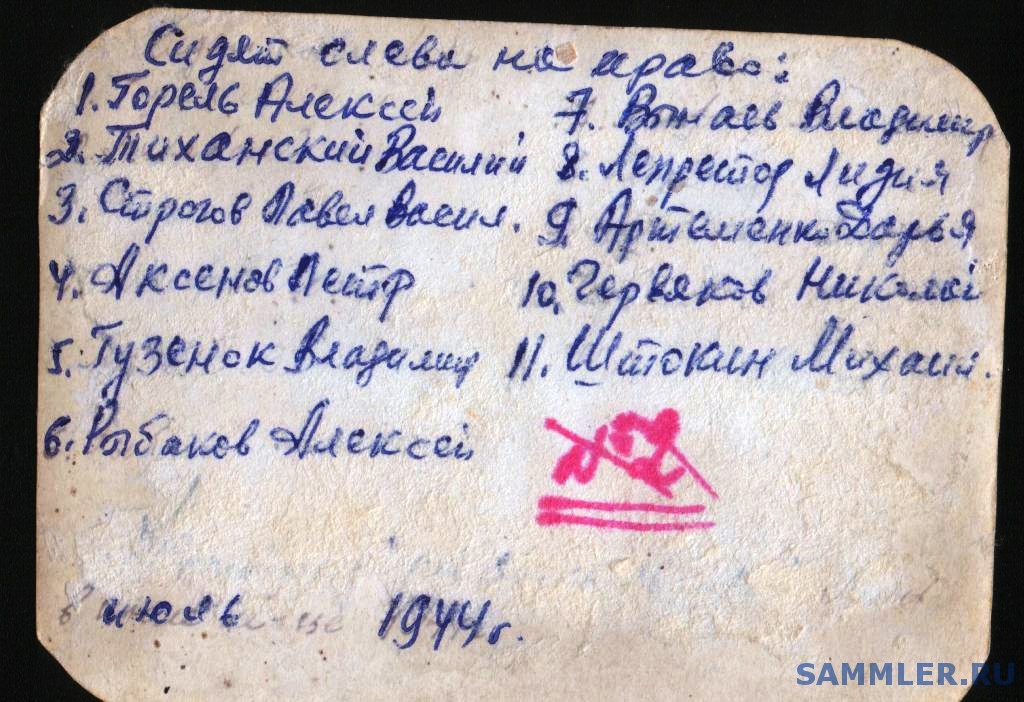 Сидят слева на право:
1. Горель Алексей
2. Тиханский Василий
3. Строгов Павел Васил.
4. Аксенов Петр
5. Гузенок Владимир
6. Рыбаков Алексей
7. Вынаев Владимир
8. Лепрестор Лидия
9. Артеменко Дарья
10. Червяков Николай
11. Штокин Михаил.
июль 1944 г.
SAMMLER.RU